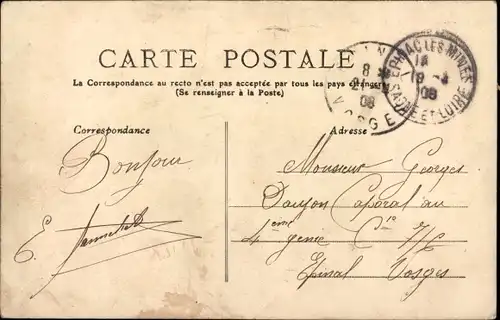 CARTE POSTALE
La Correspondance au recto n'est pas acceptée par tous les pays étrangers
(Se renseigner à la Poste)
Correspondance
Adresse
Bonjour
E.
Monsieur Georges
Caporal au
4ième génie Cie
Epinal Vosges
8
08
VOSGES
LES MINES
08
SAONE ET LOIRE